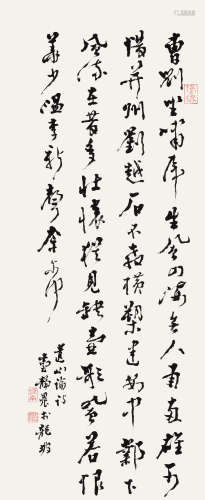 曹劉坐嘯虎生風四海無人角兩雄可
惜并州劉越石不教橫槊建安中鄴下
風流在晉多壯懷猶見缺壺歌風雲若恨
張華少溫李新聲奈爾何
遺山論詩
臺靜農於龍坡